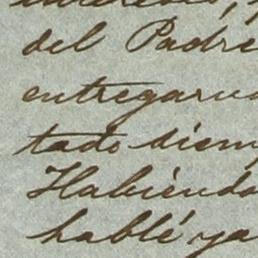 del Padre
entregaru
tado siem
Habiendo
hablé ya